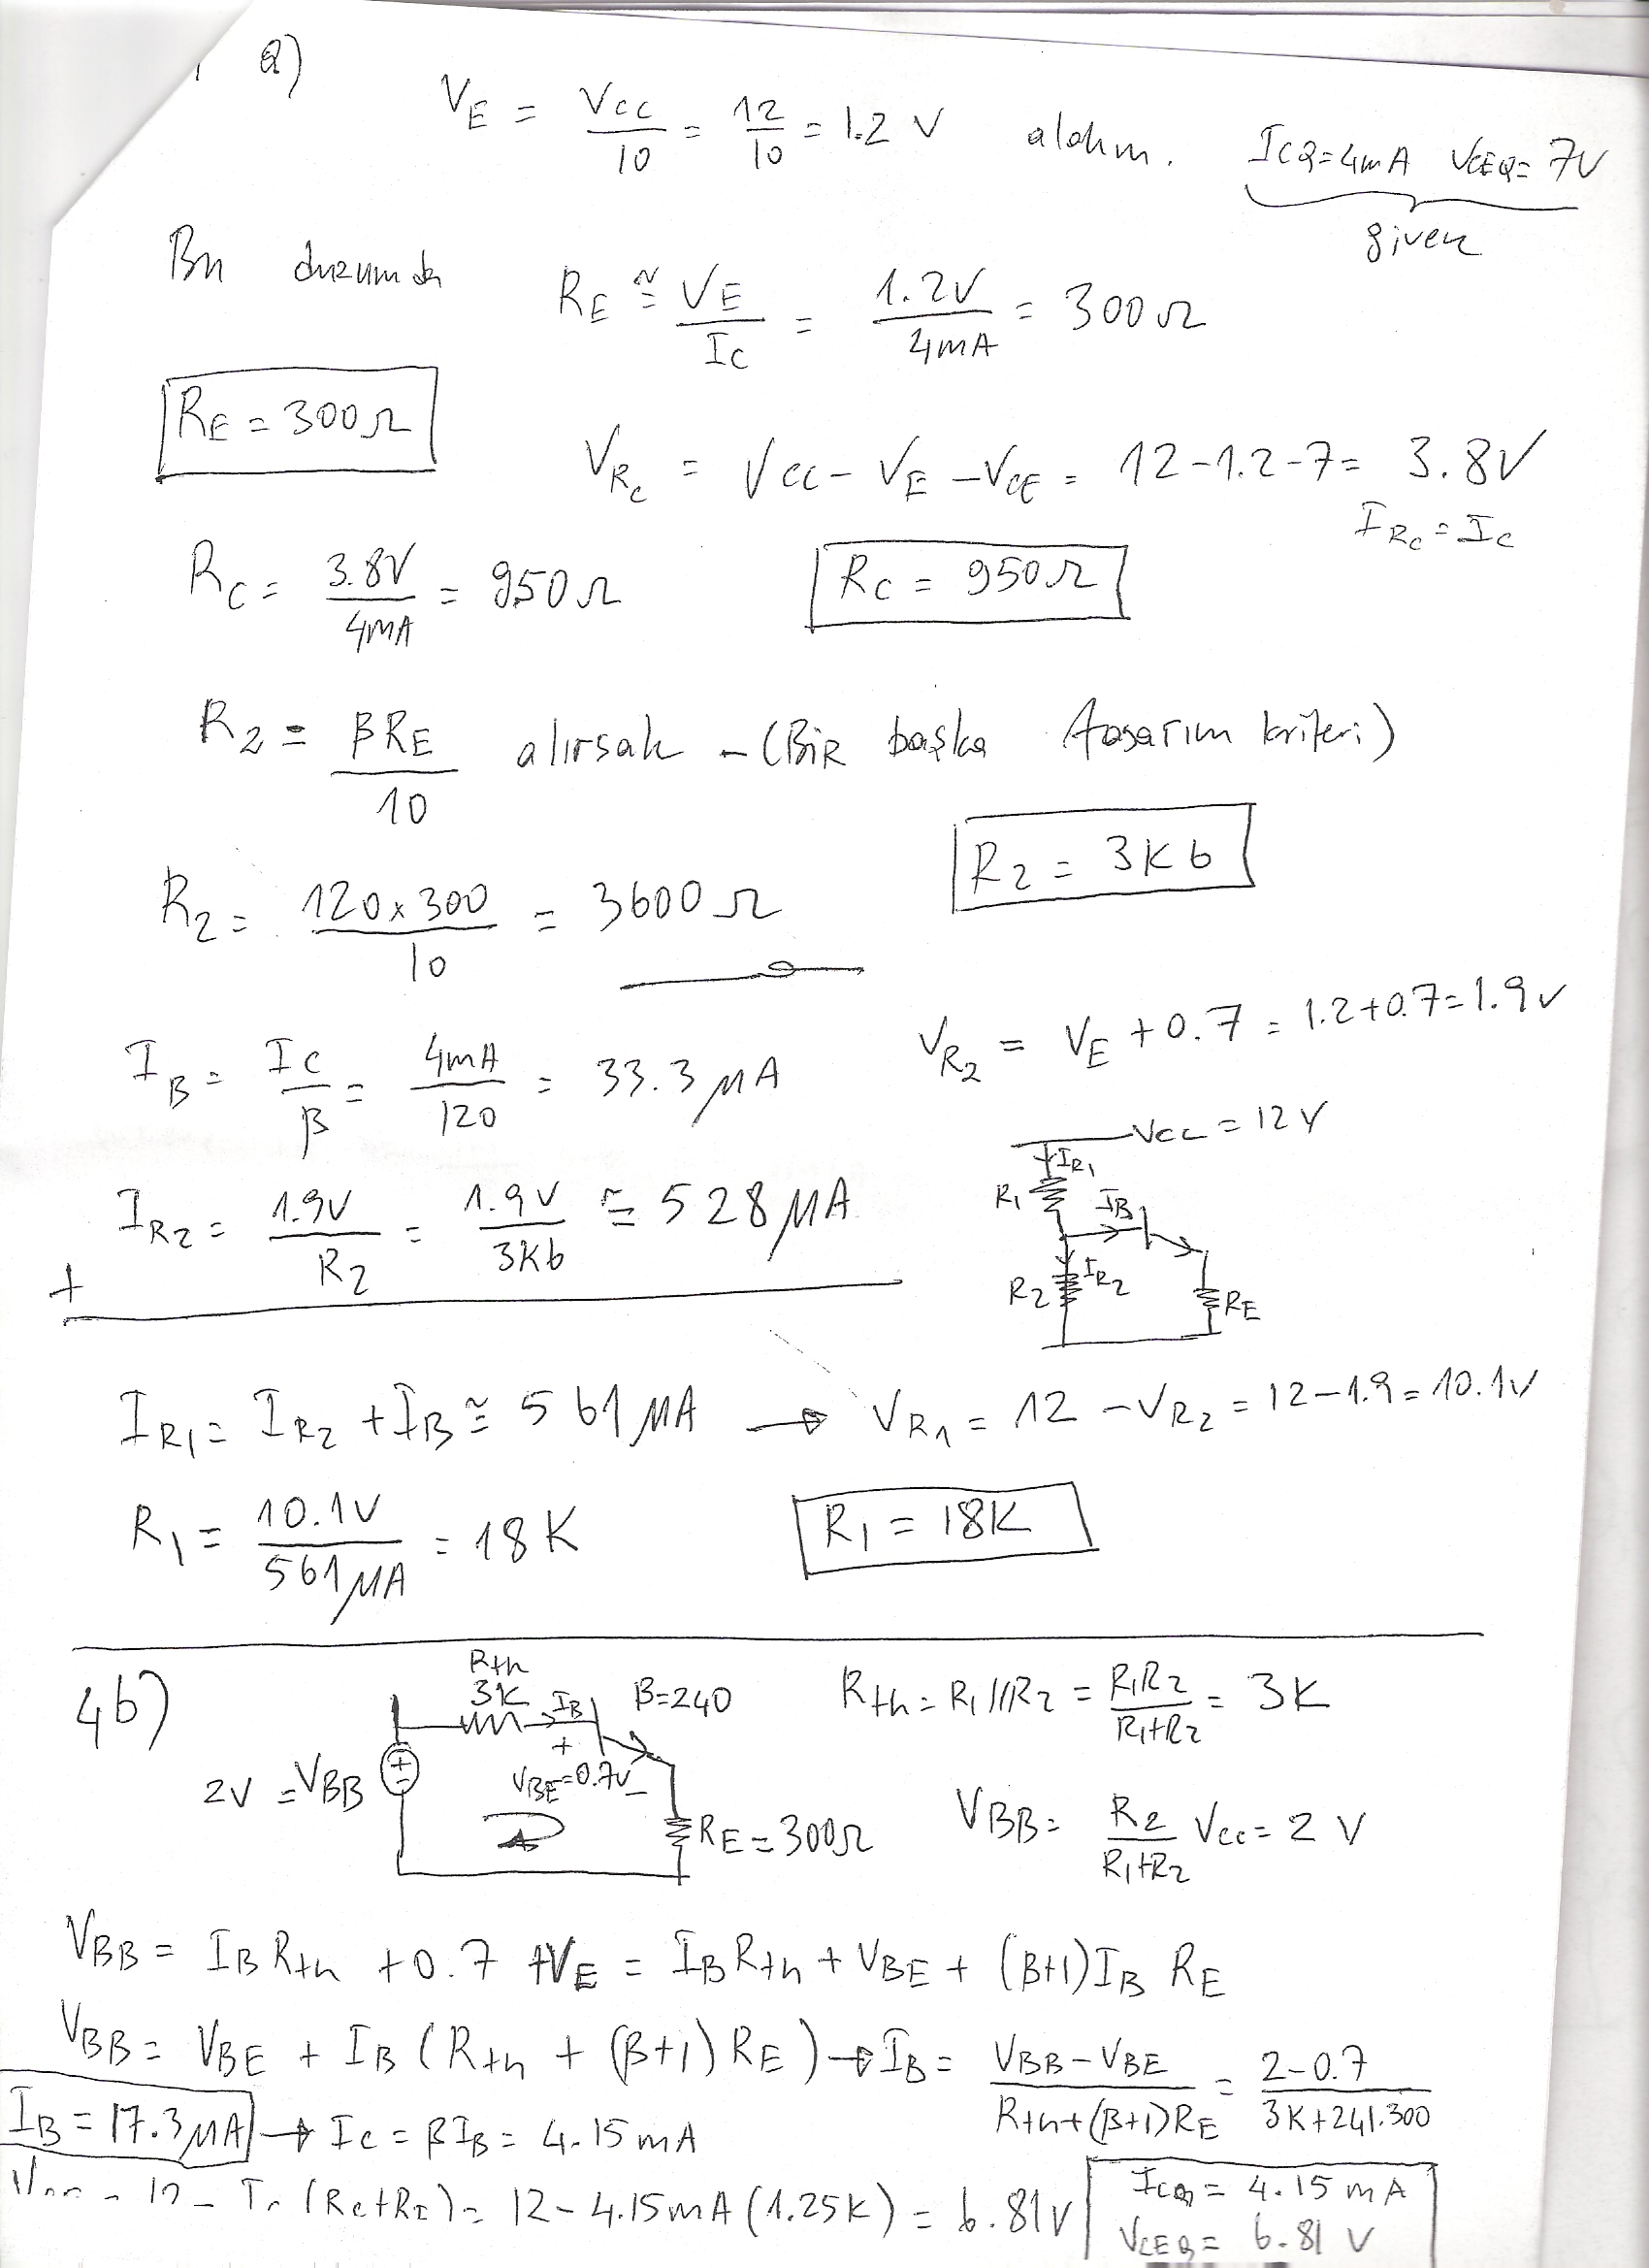 a)
V_E = Vcc/10 = 12/10 = 1.2 V aldım. I_CQ=4mA V_CEQ=7V
given
Bu durumda R_E ≅ V_E/I_C = 1.2V/4mA = 300Ω
R_E = 300Ω
V_Rc = Vcc - V_E - V_CE = 12-1.2-7 = 3.8V
I_Rc = I_C
R_C = 3.8V/4mA = 950Ω
R_C = 950Ω
R_2 = βR_E/10 alırsak - (BiR başka tasarım kriteri)
R_2 = 3K6
R_2 = 120x300/10 = 3600Ω
V_R2 = V_E + 0.7 = 1.2+0.7=1.9V
I_B = I_C/β = 4mA/120 = 33.3 μA
Vcc = 12V
I_R1
R_1
I_B
I_R2 = 1.9V/R_2 = 1.9V/3K6 ≅ 528μA
R_2
I_R2
R_E
+
I_R1 = I_R2 + I_B ≅ 561μA → V_R1 = 12 - V_R2 = 12-1.9 = 10.1V
R_1 = 10.1V/561μA = 18K
R_1 = 18K
4b)
Rth
3K
I_B
β=240
Rth = R_1//R_2 = R_1R_2/R_1+R_2 = 3K
+
V_BE=0.7V
-
2V = V_BB
+
-
R_E = 300Ω
V_BB = R_2/R_1+R_2 Vcc = 2 V
V_BB = I_B Rth + 0.7 + V_E = I_B Rth + V_BE + (β+1)I_B R_E
V_BB = V_BE + I_B (Rth + (β+1)R_E) → I_B = V_BB-V_BE/Rth+(β+1)R_E = 2-0.7/3K+241.300
I_B = 17.3μA → I_C = βI_B = 4.15mA
= 12 - (R_C+R_E) = 12-4.15mA(1.25K) = 6.81V
I_CQ = 4.15 mA
V_CEQ = 6.81 V